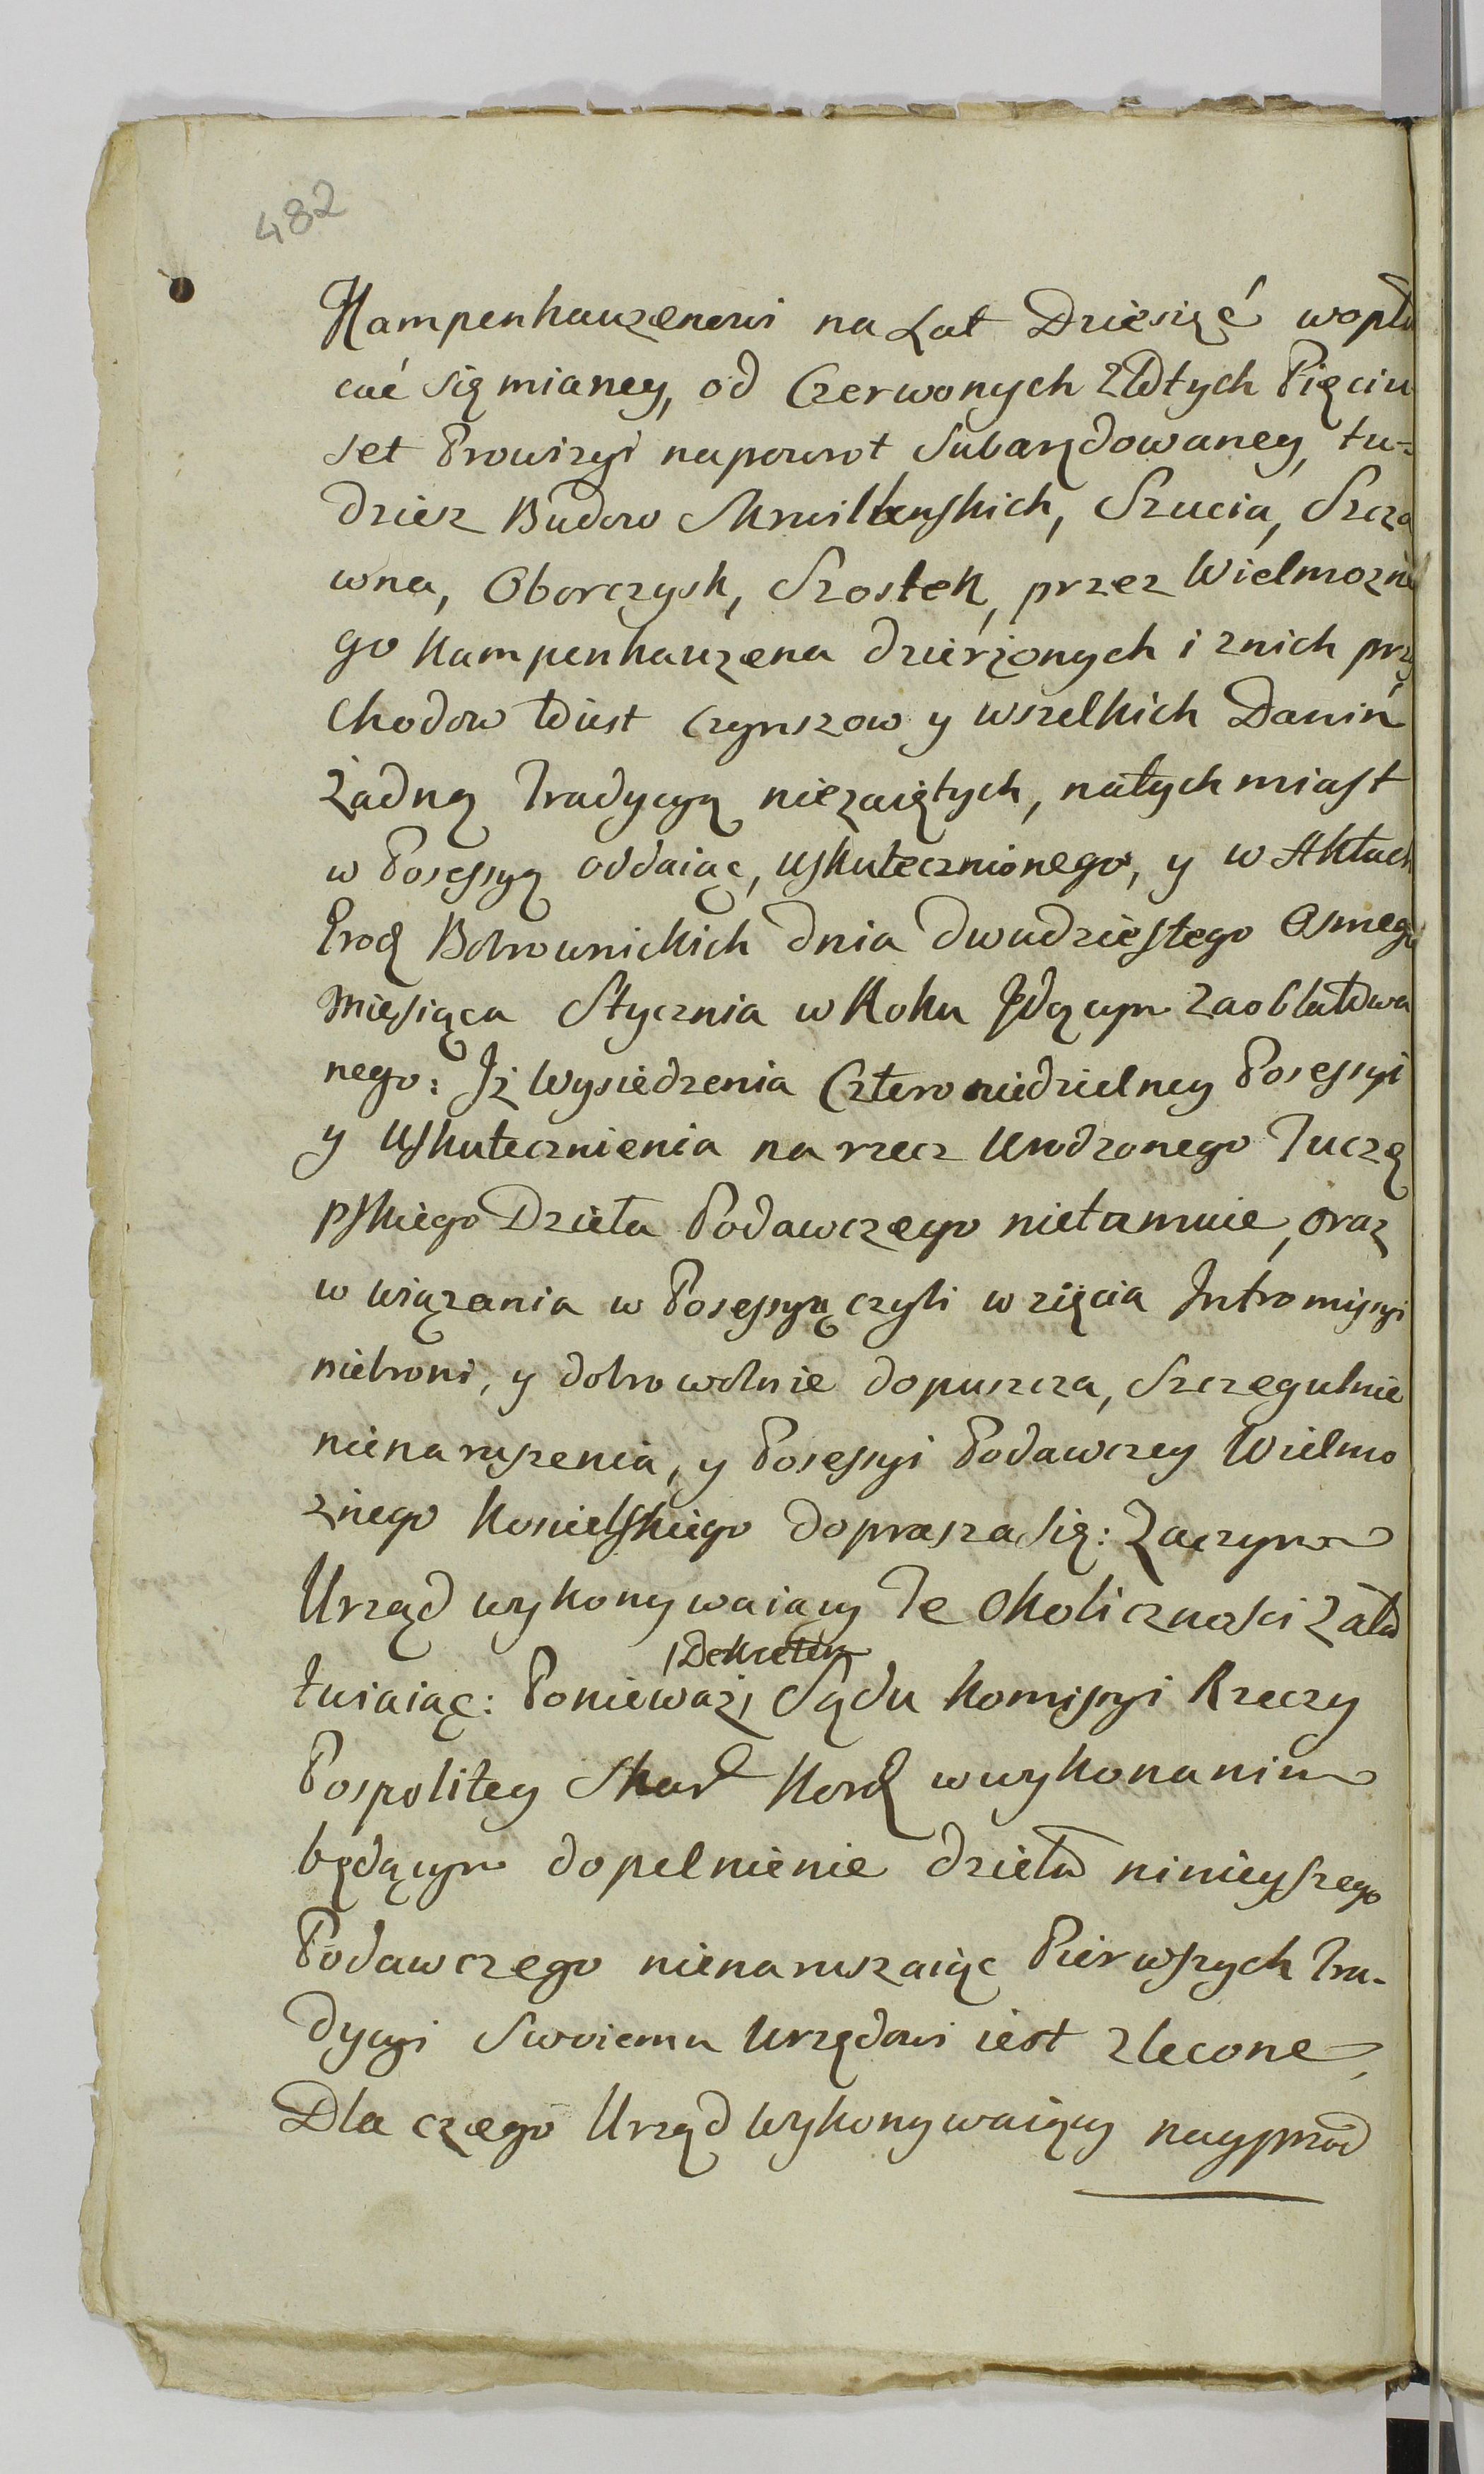 482
Kampenhauzenowi na Lat Dziesięć wopła
cać się mianey, od Czerwonych Złotych Pięciu
set Prowizyi napowrot Subarędowaney, tu=
dziesz Budow Skrwilkenskich, Szucia, Szcza
wna, Oborczysk, Szostek, przez Wielmożne
go Kampenhauzena dzierżonych i znich przy
chodow tdiest czynszow y wszelkich Danin
żadną Tradycyą niezaiętych, natychmiast
w Possessyą oddaiąc, uskutecznionego, y w Aktach
Grod Bobrownickich dnia dwudziestego Osmego
Miesiąca Stycznia w Roku Jdącym zaoblatowa
nego: Jż Wysiedzenia Cztero niedzielney Possessyi
y Uskutecznienia na rzecz Urodzonego Tuczę
pskiego Dzieła Podawczego nietamuie, oraz
w wiązania w Possessyą czyli wzięcia Intromissyi
niebroni, y dobrowolnie dopuszcza, Szczegulnie
nienaruszenia, y Possessyi Podawczey Wielmo
żnego Kosielskiego doprasza się: Zaczym
Urząd wykonywaiący Te Okoliczności zała
Dekretem
twiaiąc: Ponieważ Sądu Komissyi Rzeczy
Pospolitey Skar Kor wwykonaniu
będącym dopełnienie dzieła ninieyszego
Podawczego nienaruszaiąc Pierwszych Tra-
dycyi Swoiemu Urzędowi iest zlecone,
Dla czego Urząd Wykonywaiący nayprzod